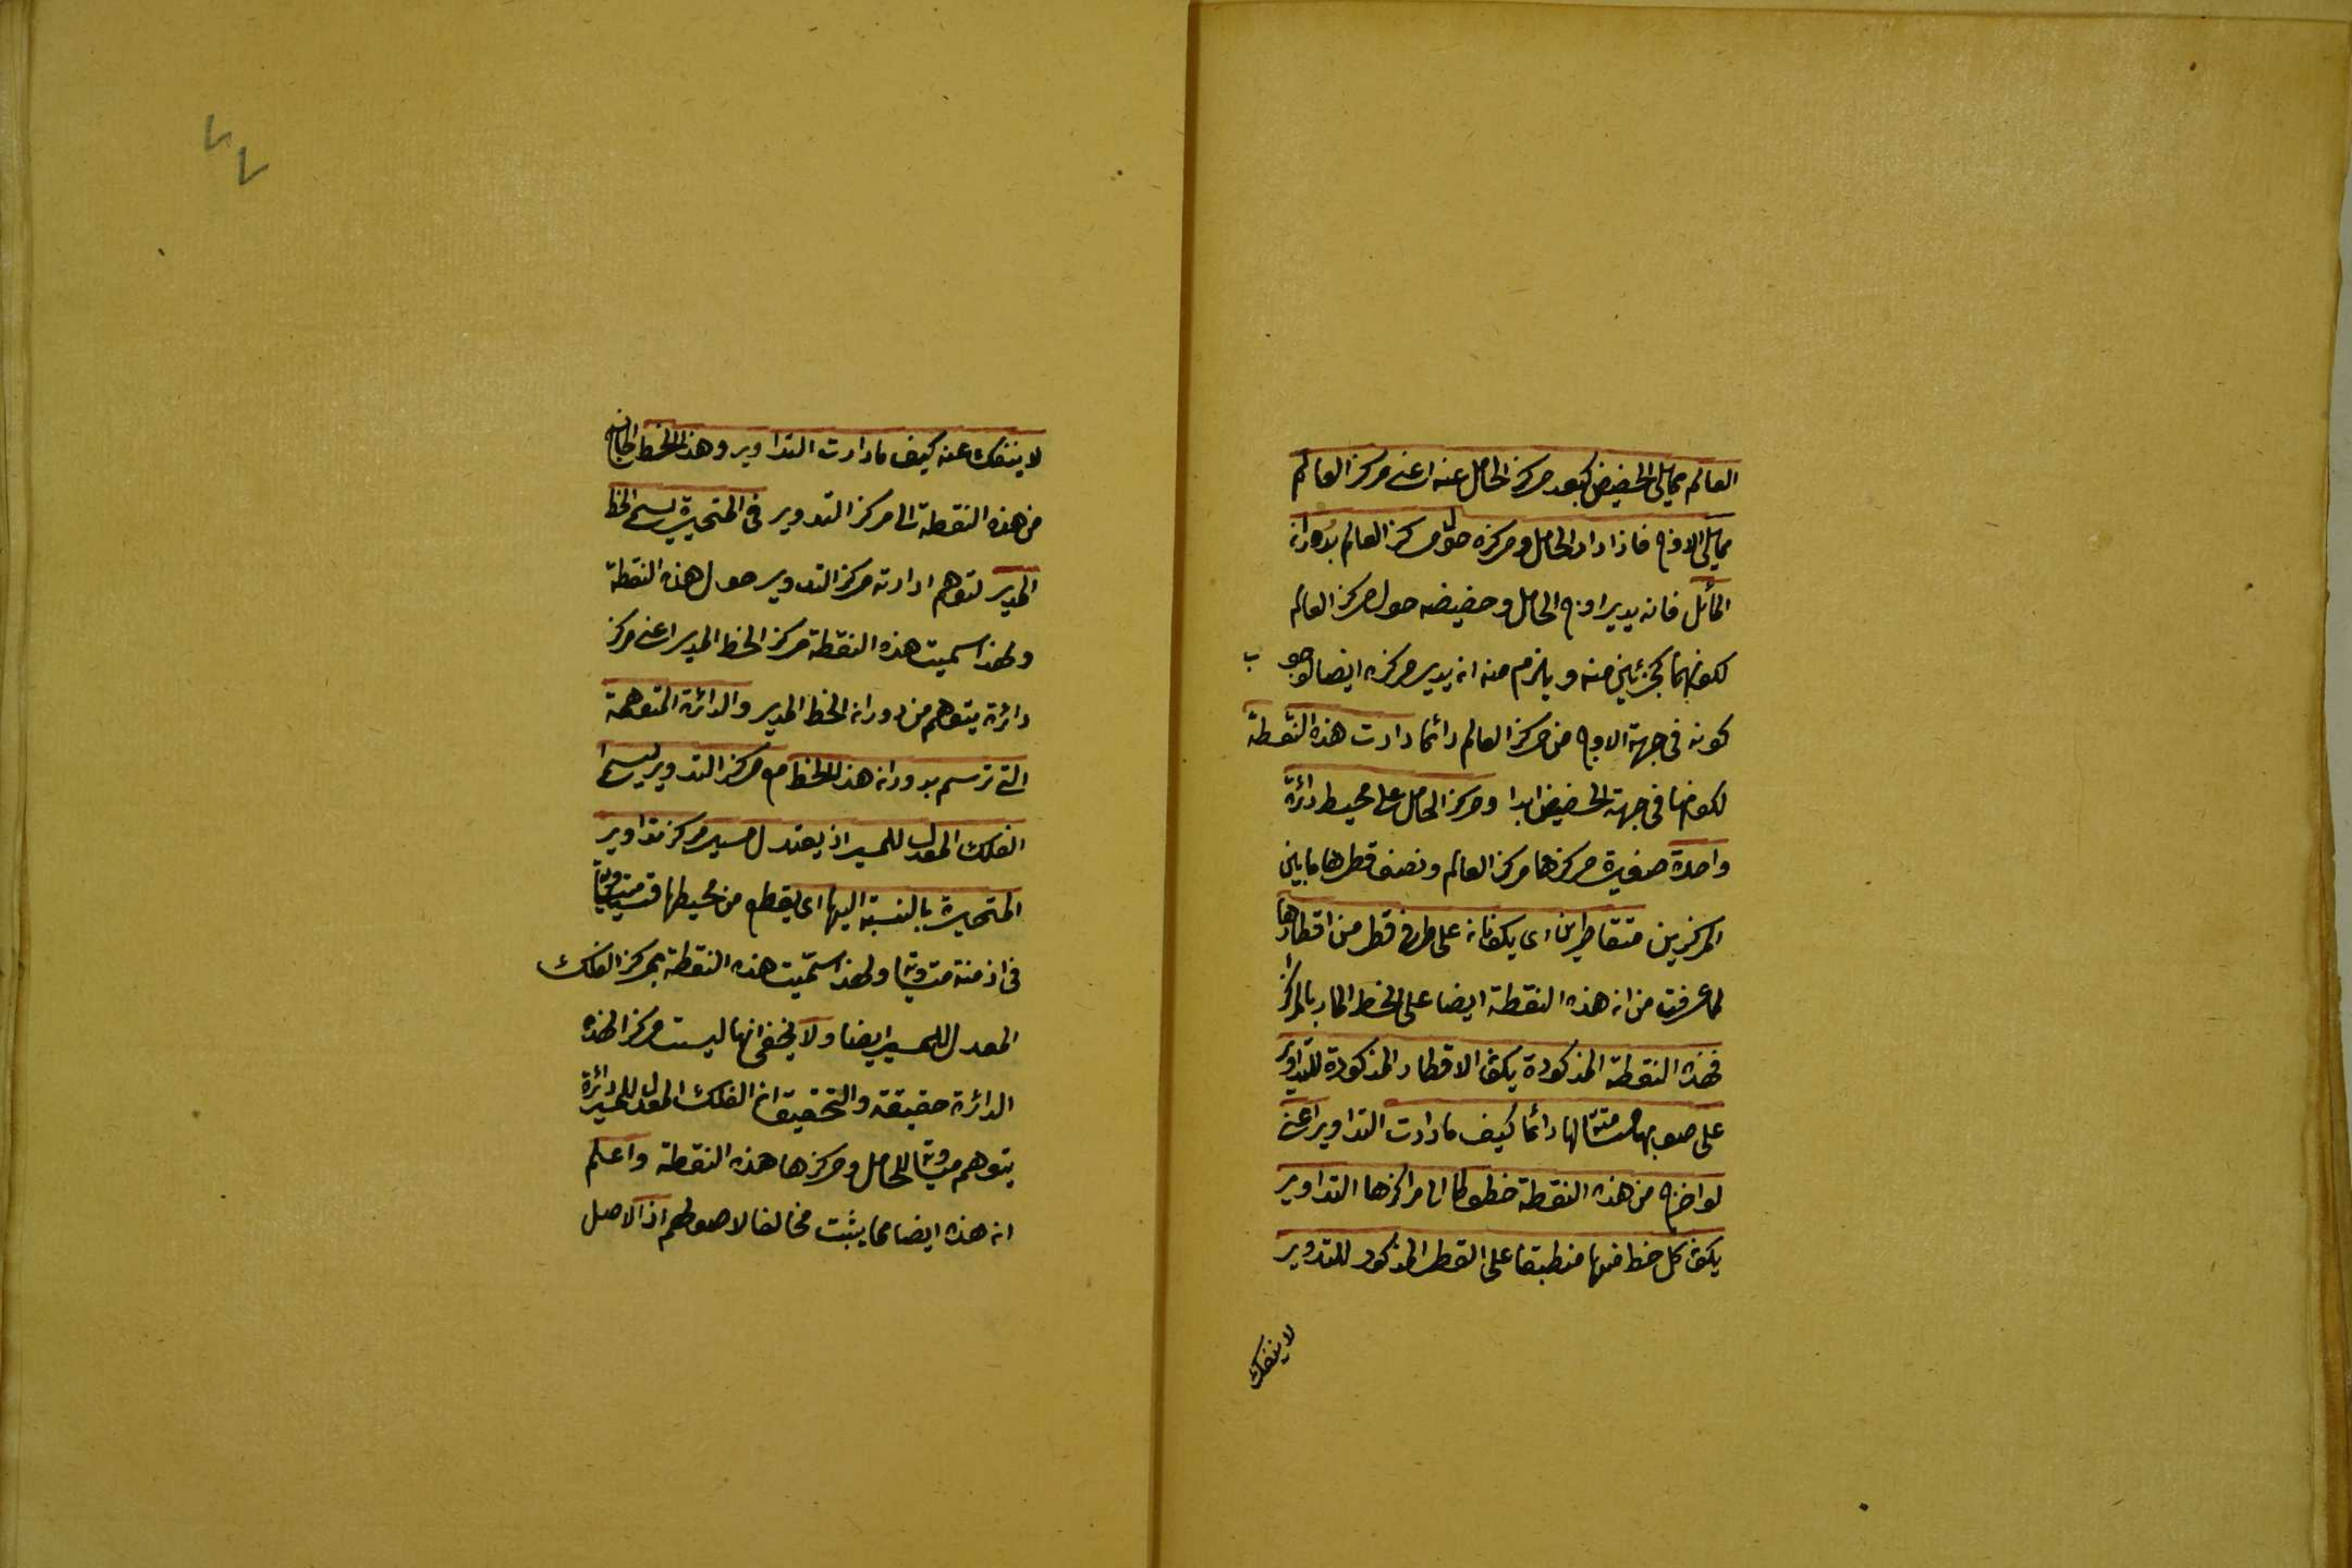 العالم مما يلى الحضيض كبعد مركز الحامل عنه اعنى مركز العالم
مما يلى الاوج فاذا ادار الحامل ومركزه حول مركز العالم بدوران
المائل فانه يدير اوج الحامل وحضيضه حول مركز العالم
لكونهما كجزئين منه ويلزم منه ان يدير مركزه ايضا لوجوب
كونه فى جهة الاوج من مركز العالم دائما دارت هذه النقطة
لكونها فى جهة الحضيض ابدا ومركز الحامل على محيط دائرة
واحدة صغيرة مركزها مركز العالم ونصف قطرها ما بين
المركزين متقاطرين اى يكونان على طرفى قطر من اقطارها
لما عرفت من ان هذه النقطة ايضا على الخط المار بالمراكز
فهذه النقطة المذكورة يكون الاقطار المذكورة للتداوير
على صوبها مسامتة لها دائما كيف ما دارت التداوير اعنى
لو اخرج من هذه النقطة خطوط الى مراكزها التداوير
يكون كل خط منها منطبقا على القطر المذكور للتدوير
لا ينفك
٧٧
لا ينفك عنه كيف ما دارت التداوير وهذا الخط الخارج
من هذه النقطة الى مركز التدوير فى المتحيرة يسمى الخط
المدير لتوهم ادارته مركز التدوير حول هذه النقطة
ولهذا سميت هذه النقطة مركز الخط المدير اعنى مركز
دائرة يتوهم من دوران الخط المدير والدائرة المتوهمة
التى ترتسم بدوران هذا الخط مع مركز التدوير يسمى
الفلك المعدل للمسير اذ يعتدل مسير مركز تداوير
المتحيرة بالنسبة اليها اى يقطع من محيطها قسيا متساوية
فى ازمنة متساوية ولهذا سميت هذه النقطة بمركز الفلك
المعدل للمسير ايضا ولا يخفى انها ليست مركز الهذه
الدائرة حقيقة والتحقيق ان الفلك المعدل للمسير دائرة
يتوهم مساوية للحامل ومركزها هذه النقطة واعلم
ان هذه ايضا مما يثبت مخالفا لاصولهم اذ الاصل